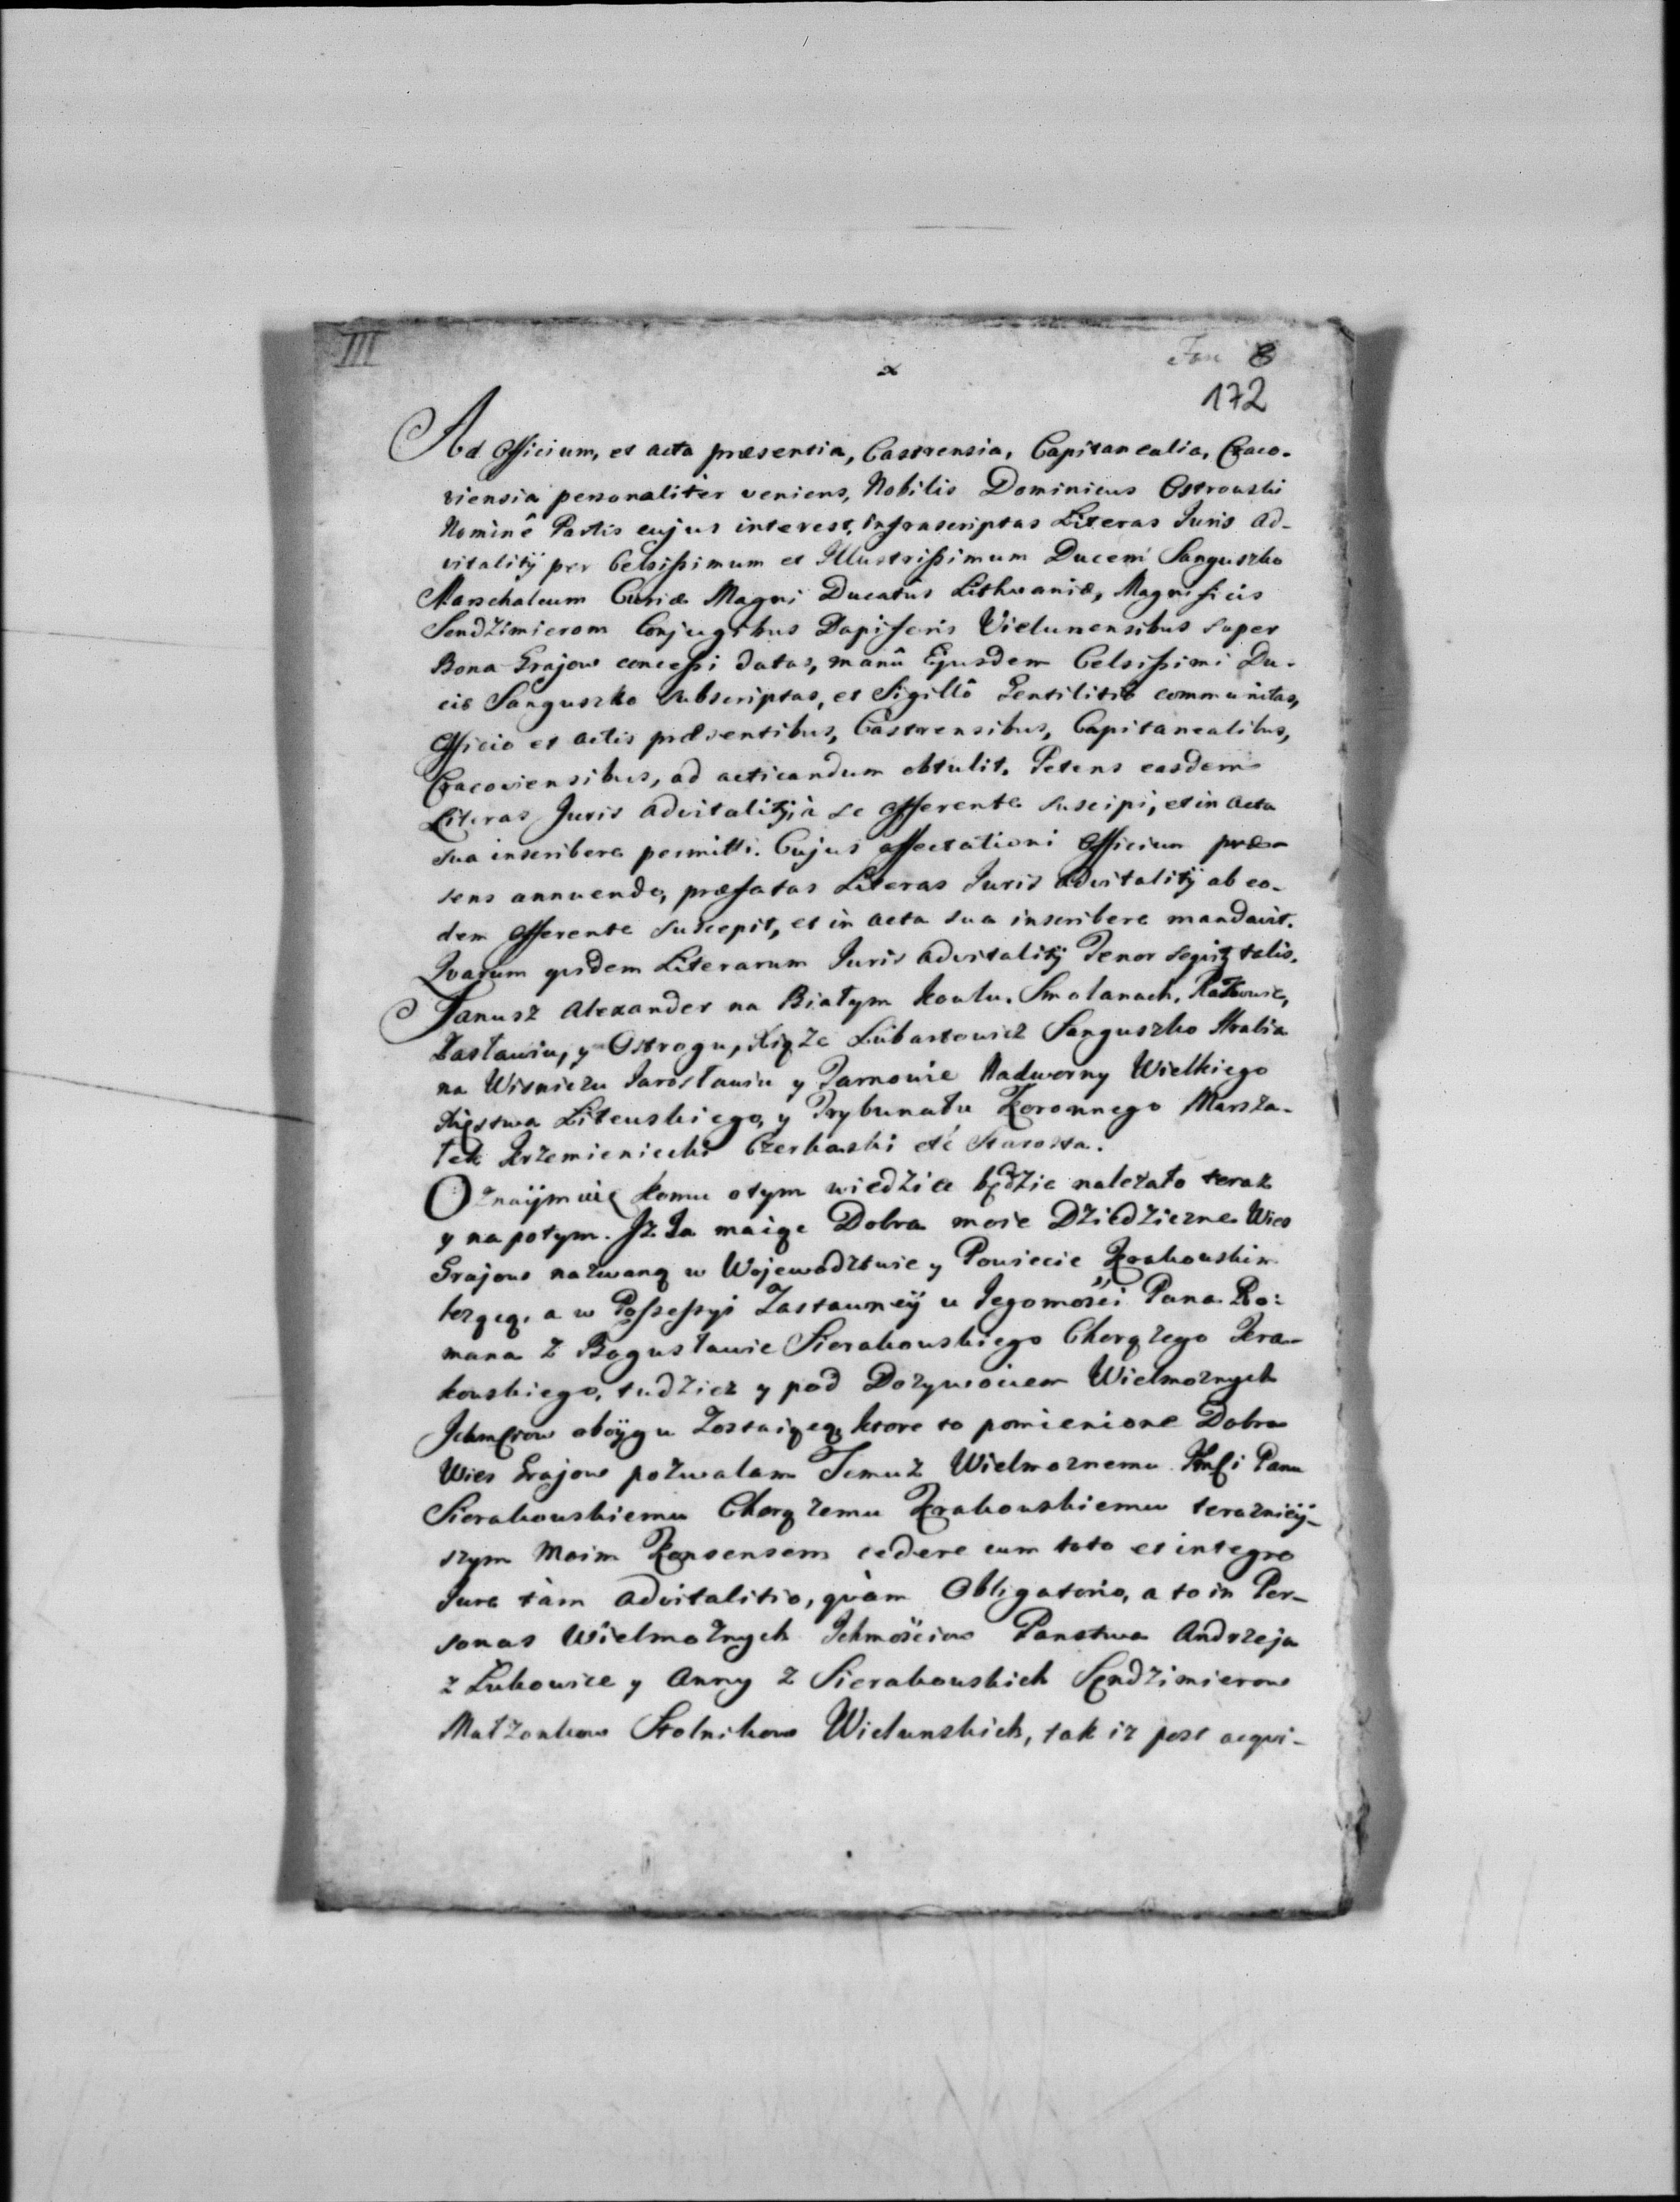 III
8
172
Ad Officium, et acta præsentia, Castrensia, Capitanealia, Craco-
viensia personaliter veniens, Nobilis Dominicus Ostrowski
Nominê Partis cujus interest, infrascriptas Literas Juris ad-
vitalitÿ per Celsissimum et Illustrissimum Ducem Sanguszko
Marschalcum Curiæ Magni Ducatus Lithvaniæ, Magnificis
Sendzimierom Conjugibus Dapiferis Vielunensibus super
Bona Grajow concessi datas, manû Ejusdem Celsissimi Du-
cis Sanguszko subscriptas, et Sigillô Gentilitiô communitas,
Officio et actis præsentibus, Castrensibus, Capitanealibus,
Cracoviensibus, ad acticandum obtulit. Petens easdem
Literas Juris advitalitÿ, à se offerente suscipi, et in acta
sua inscribere permitti. Cujus affectationi Officium præ-
sens annuendo, præfatas Literas Juris advitalitÿ ab eo-
dem offerente suscepit, et in acta sua inscribere mandavit.
Qvarum qvidem Literarum Juris advitalitÿ Tenor seqvitz talis.
Janusz Alexander na Białym Kowlu, Smolanach, Rakowie,
Zasławiu, y Ostrogu, Xiąże Lubartowicz Sanguszko Hrabia
na Wisniczu Jarosławiu y Tarnowie Nadworny Wielkiego
Xięstwa Litewskiego, y Trybunału Koronnego Marsza-
łek Krzemieniecki Czerkaski etc Starosta.
Oznaÿmuię komu otym wiedziec będzie należało teraz
y na potym. Iż Ja maiąc Dobra moie Dziedziczne Wies
Grajow nazwaną w Wojewodztwie y Powiecie Krakowskim
leząą, a w Possessyi Zastawneÿ u Jegomości Pana Ro:
mana z Bogusławic Sierakowskiego Chorążego Kra-
kowskiego, tudziez y pod Dozywociem Wielmoznych
Ichmciow oboÿgu zostaiącą, ktore to pomienione Dobra
Wies Grajow pozwalam Temuz Wielmoznemu Jmci Panu
Sierakowskiemu Chorążemu Krakowskiemu teraznieÿ-
szym Moim Konsensem cedere cum toto et integro
Jure tàm advitalitio, qvàm Obligatorio, a to in Per-
sonas Wielmożnych Ichmościow Panstwa Andrzeja
z Łukowice y Anny z Sierakowskich Sędzimierow
Małzonkow Stolnikow Wielunskich, tak iz post acqvi-